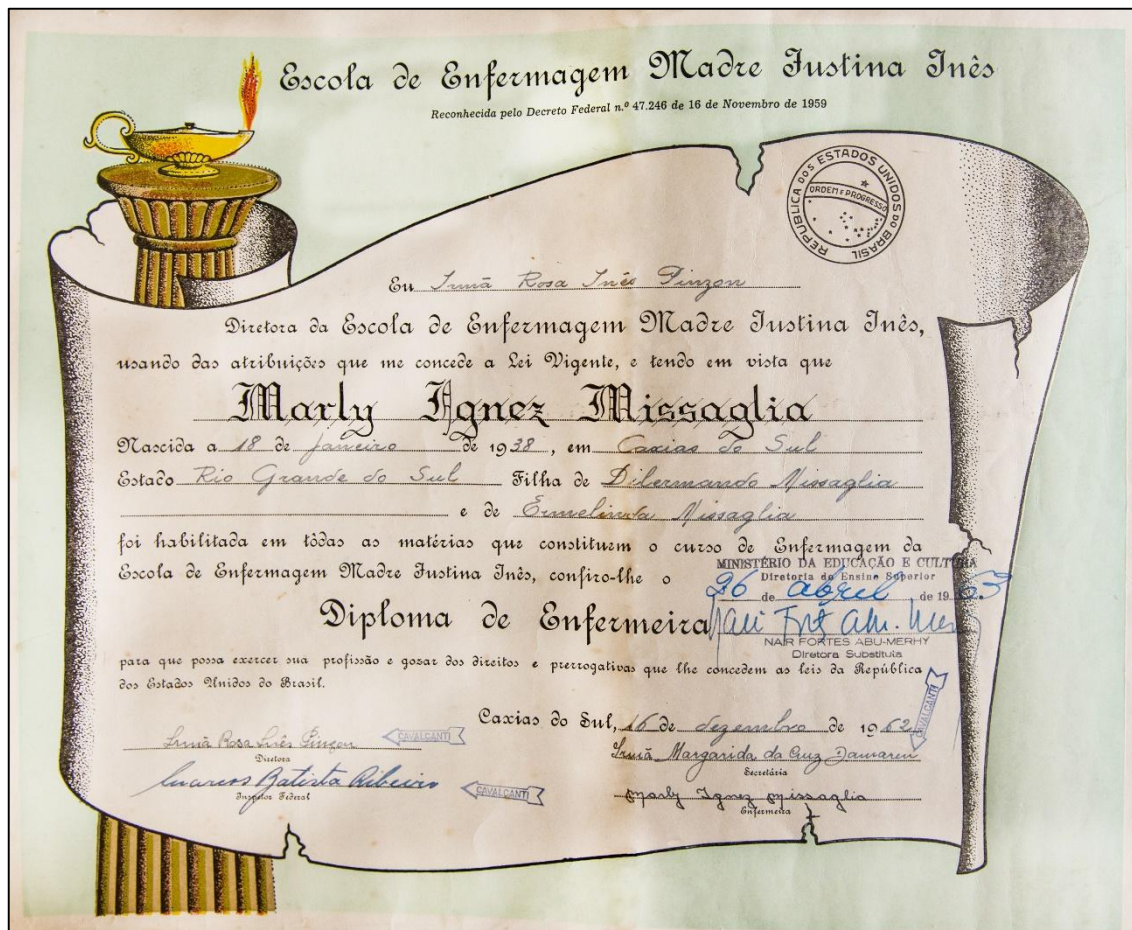 Escola de Enfermagem Madre Justina Inês
Reconhecida pelo Decreto Federal n.º 47.246 de 16 de Novembro de 1959
REPUBLICA DOS ESTADOS UNIDOS DO BRASIL
ORDEM E PROGRESSO
Eu Irmã Rosa Inês Pinzon
Diretora da Escola de Enfermagem Madre Justina Inês,
usando das atribuições que me concede a Lei Vigente, e tendo em vista que
Marly Agnez Missaglia
Nascida a 18 de janeiro de 1938, em Caxias do Sul
Estado Rio Grande do Sul Filha de Dilermando Missaglia
e de Ermelinda Missaglia
foi habilitada em tôdas as matérias que constituem o curso de Enfermagem da
Escola de Enfermagem Madre Justina Inês, confiro-lhe o
MINISTÉRIO DA EDUCAÇÃO E CULTURA
Diretoria do Ensino Superior
26 de abril de 1963
Diploma de Enfermeira
NAIR FORTES ABU-MERHY
Diretora Substituta
para que possa exercer sua profissão e gosar dos direitos e prerrogativas que lhe concedem as leis da República
dos Estados Unidos do Brasil.
Caxias do Sul, 16 de dezembro de 1962
CAVALCANTI
Irmã Rosa Inês Pinzon
Diretora
CAVALCANTI
Irmã Margarida da Cruz
Secretária
Batista Ribeiro
Inspetor Federal
CAVALCANTI
Marly Ignez Missaglia
Enfermeira